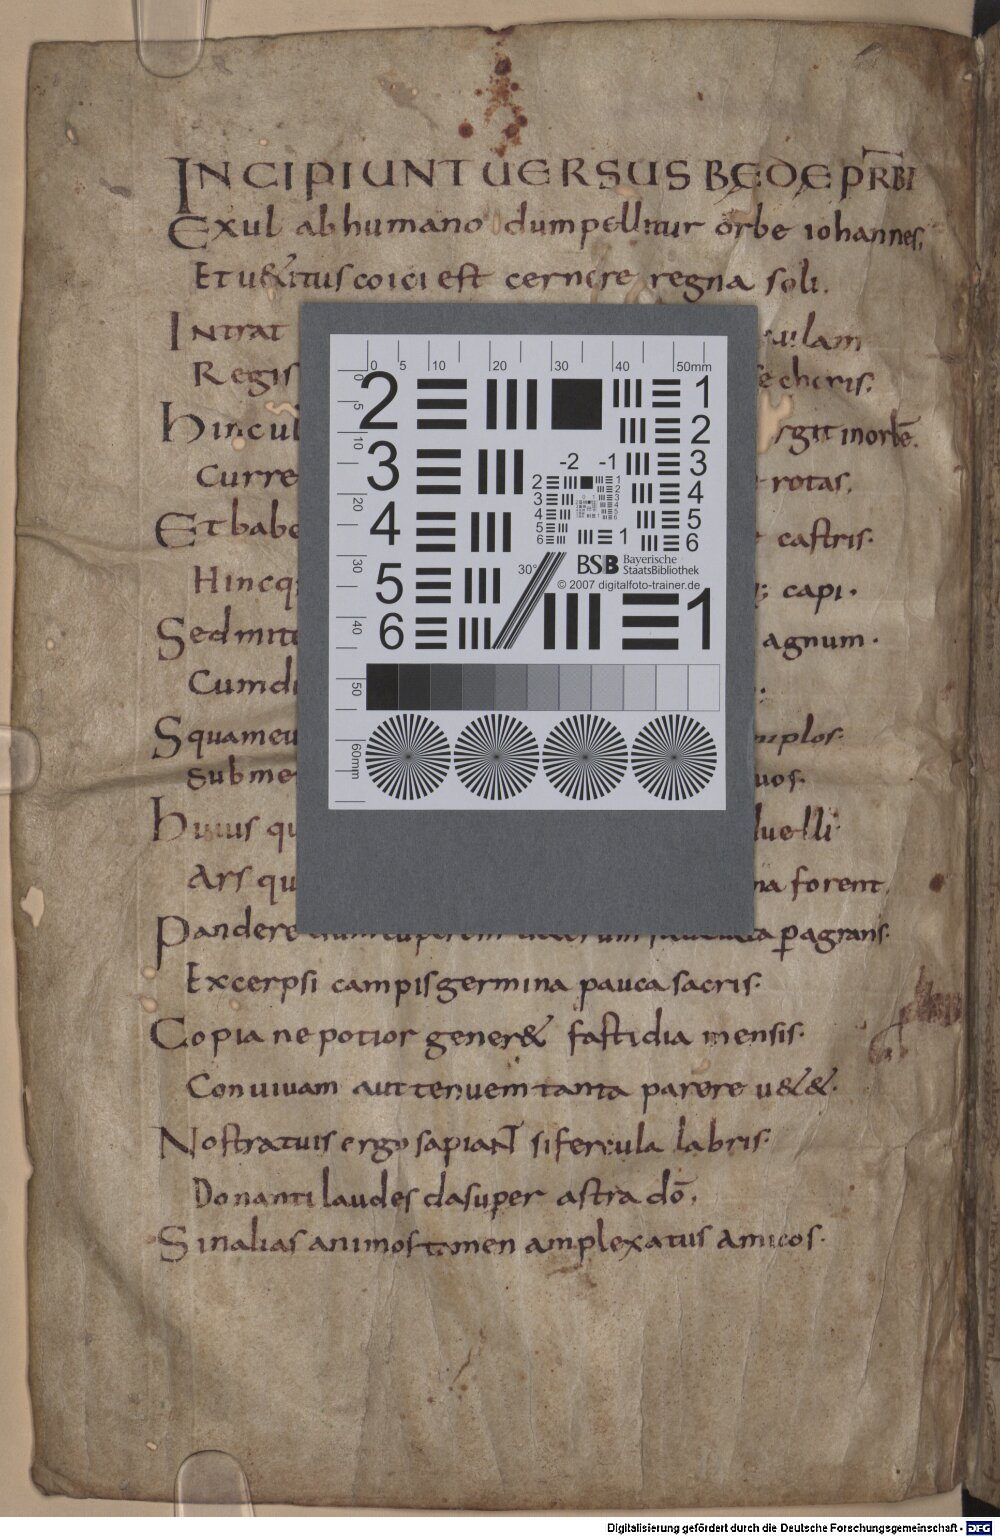 INCIPIUNT UERSUS BEDE PRBI
Exul ab humano dum pellitur orbe iohannes,
Et u&itus coici est cernere regna soli.
Intrat ulam
Regis choris;
hincui rgit in orbē.
Curre rotas,
Et babe castris.
Hincq; capi.
Sed mite agnum.
Cumdi
Squameu mplos.
Submer uos.
huius qu duelli
Ars qu na forent.
Pandere p̄agrans.
Excerpsi campis germina pauca sacris.
Copia ne potior gener& fastidia mensis.
Conuiuam aut tenuem tanta parere u&&.
Nostratuis ergo sapiant si fercula labris
Donanti laudes da super astra dō,
Sin alias animos tamen amplexatus amicos.
0 5 10 20 30 40 50mm
0 5 10 20 30 40 50 60mm
2 1
2
3 -2 -1 3
4 4
5
6
5 30° BSB Bayerische StaatsBibliothek
© 2007 digitalfoto-trainer.de
6 1
Digitalisierung gefördert durch die Deutsche Forschungsgemeinschaft - DFG